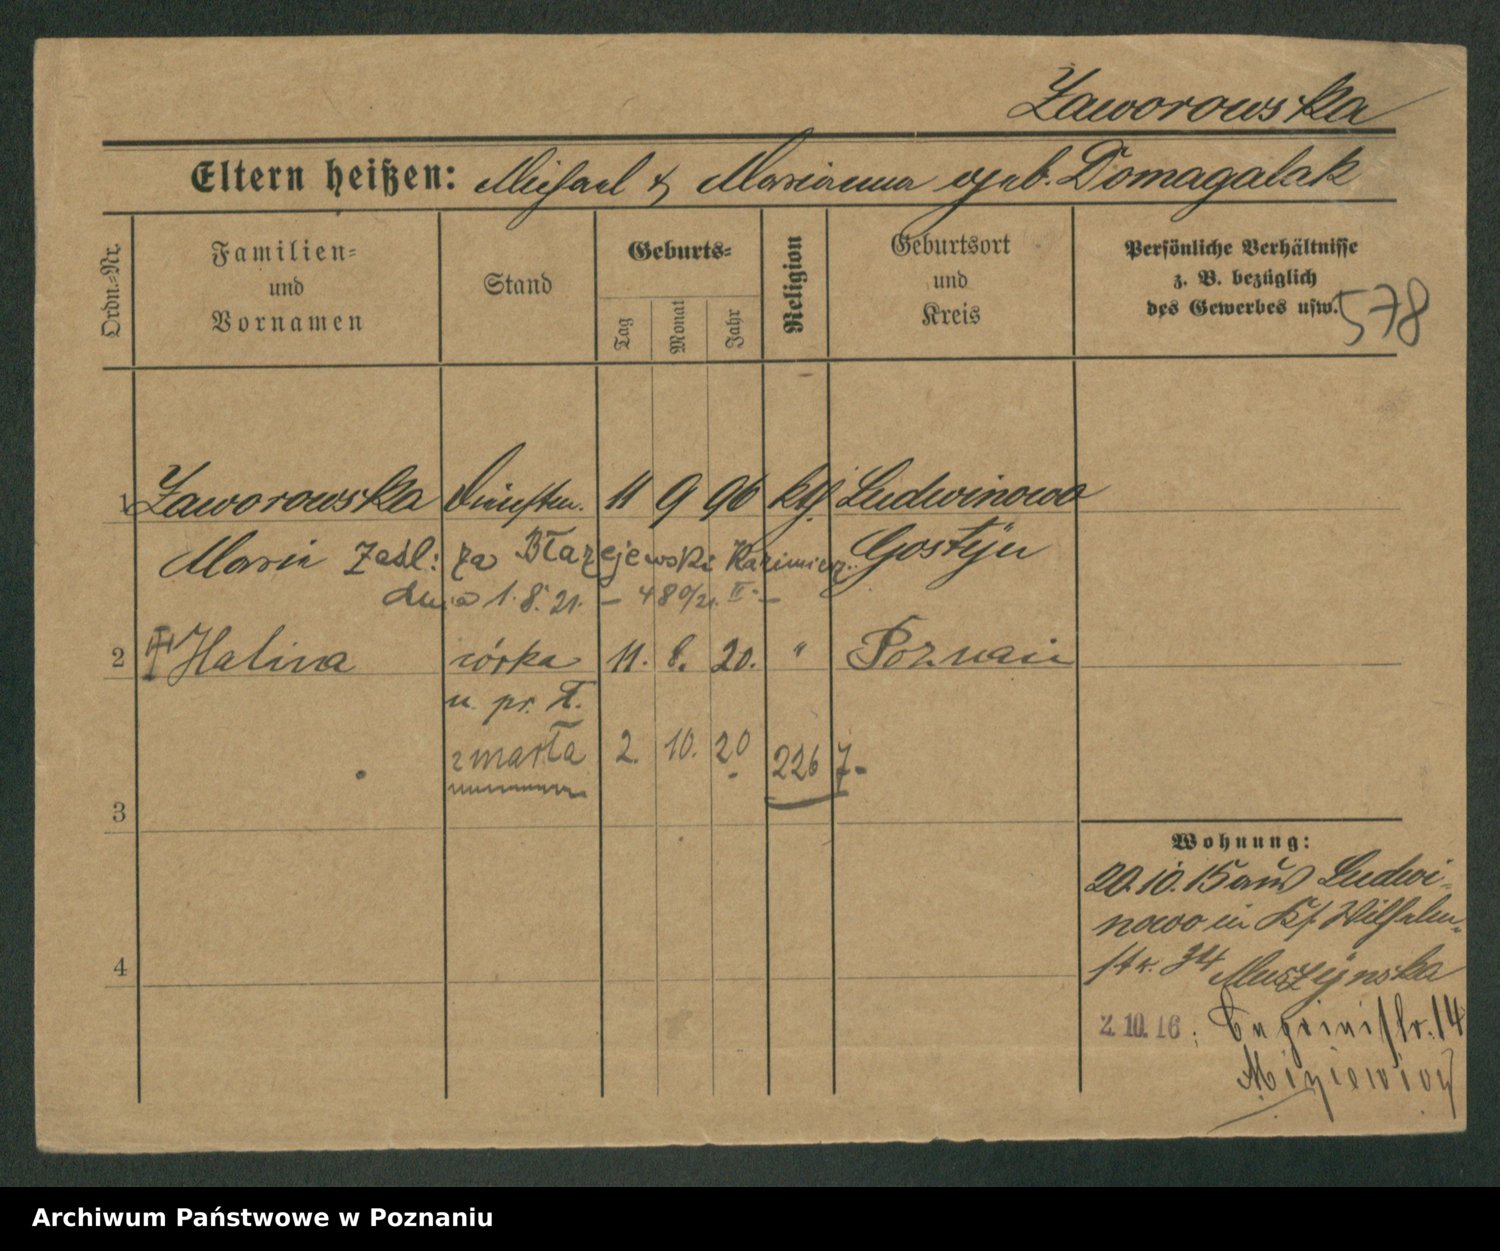 Zaworowska
Eltern heißen: Michael & Marianna geb. Domagalak
Ordn.-Nr.
Familien-
und
Vornamen
Stand
Geburts-
Tag
Monat
Jahr
Religion
Geburtsort
und
Kreis
Persönliche Verhältnisse
z. B. bezüglich
des Gewerbes usw.
578
1 Zaworowska Dienstm. 11 9 96 kth. Ludwinowo
Marie Zaśl: za Błażejewski Kazimierz. Gostyn
dnia 1.8.21. — 480/21. II. —
2 Halina córka 11. 8. 20. " Poznań
n. pr. Ł.
zmarła 2. 10. 20 226 7.
3
4
Wohnung:
20.10.15 aus Ludwi-
nowo in Wilhelm-
str. 34 Muszynska
2.10.16; 14
Miziewicz
Archiwum Państwowe w Poznaniu